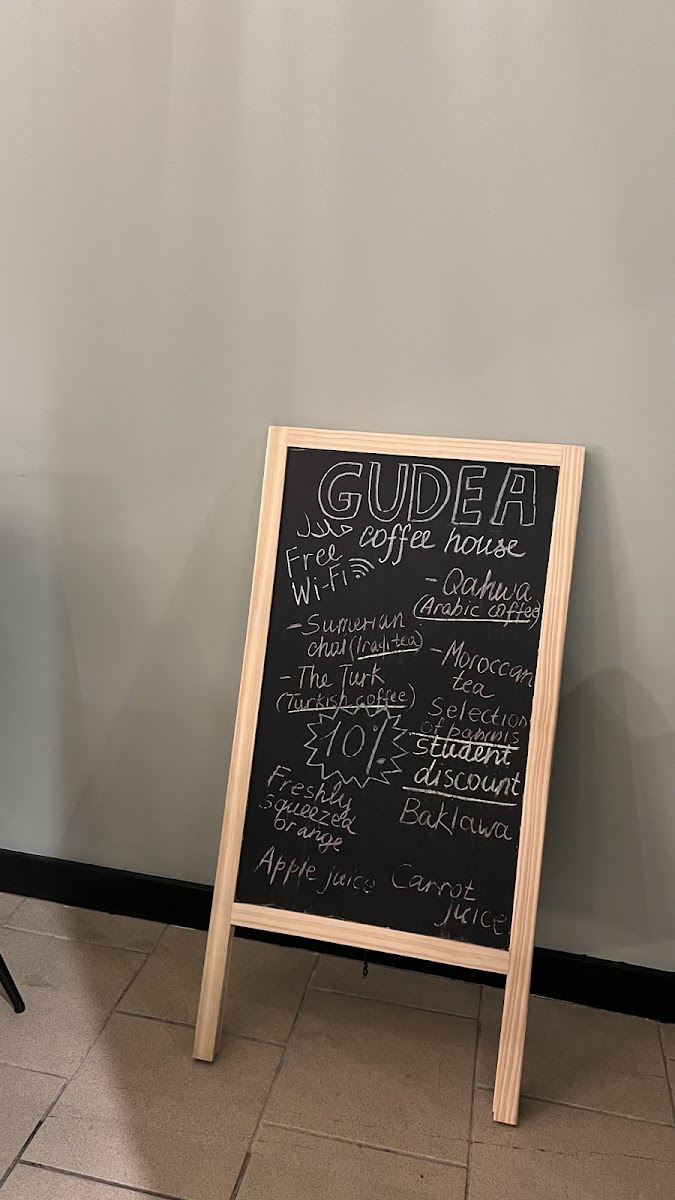 GUDEA
حلال
coffee house
Free
Wi-Fi
- Qahwa
(Arabic coffee)
- Sumerian
chai (Iraqi tea)
- Moroccan
tea
- The Turk
(Turkish coffee)
Selection
of paninis
10%
student
discount
Freshly
squeezed
orange
Baklawa
Apple juice
Carrot
juice